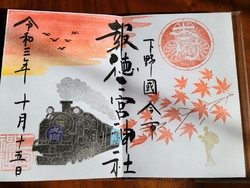 下野國今市
報徳二宮神社
令和三年十月十五日